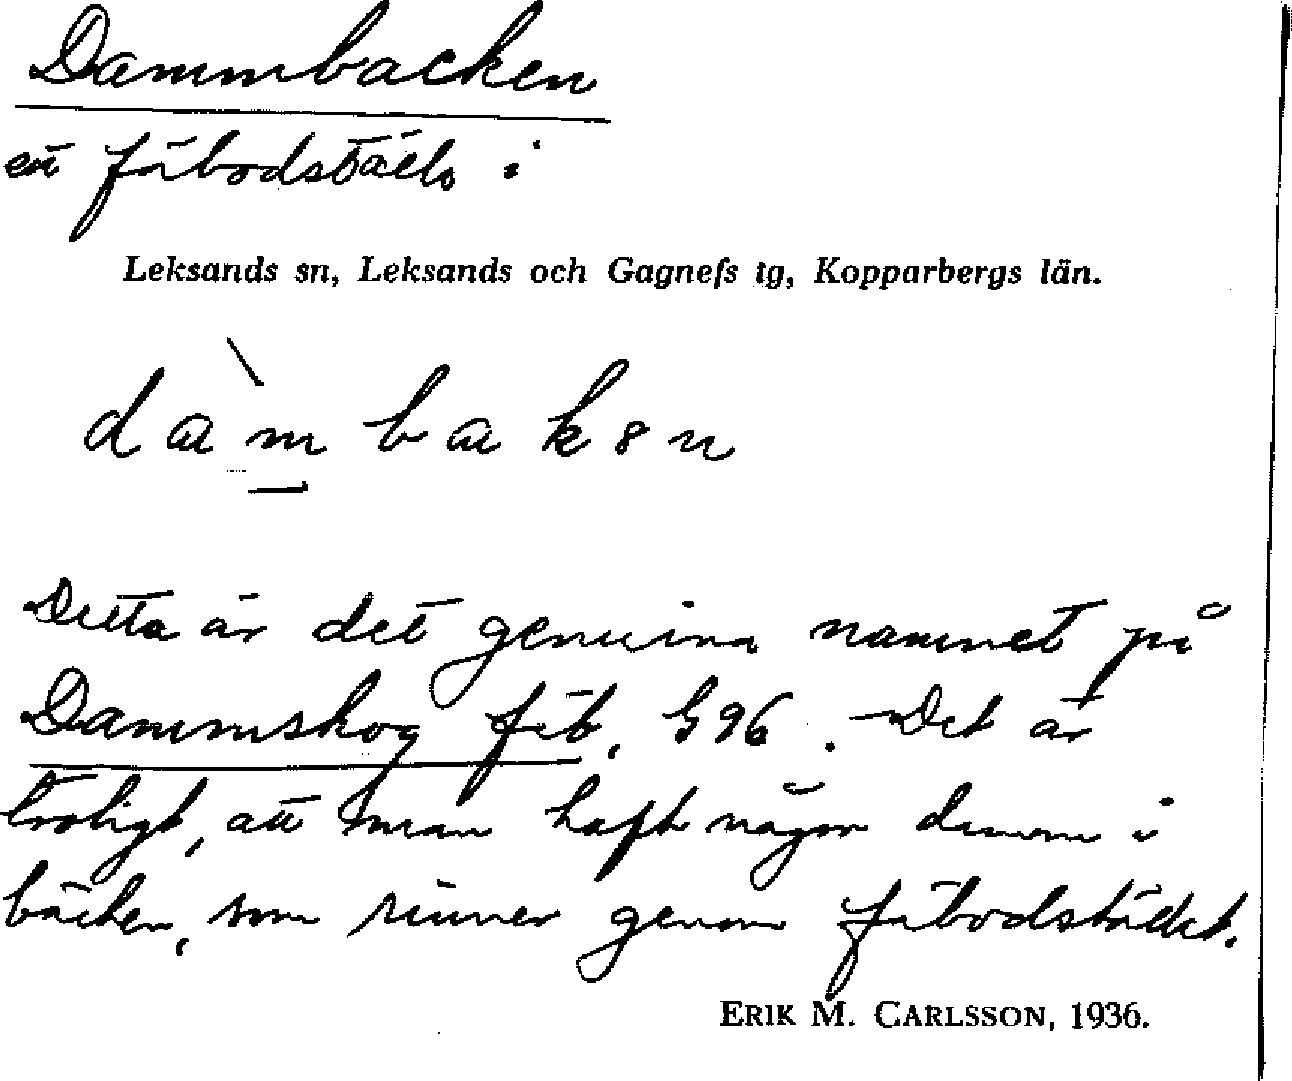 Dammbacken
ett fäbodställe i
Leksands sn, Leksands och Gagnefs tg, Kopparbergs län.
dàm bakən
Detta är det genuina namnet på
Dammskog fäb, G96. Det är
troligt, att man haft någon damm i
bäcken, som rinner genom fäbodstället.
ERIK M. CARLSSON, 1936.